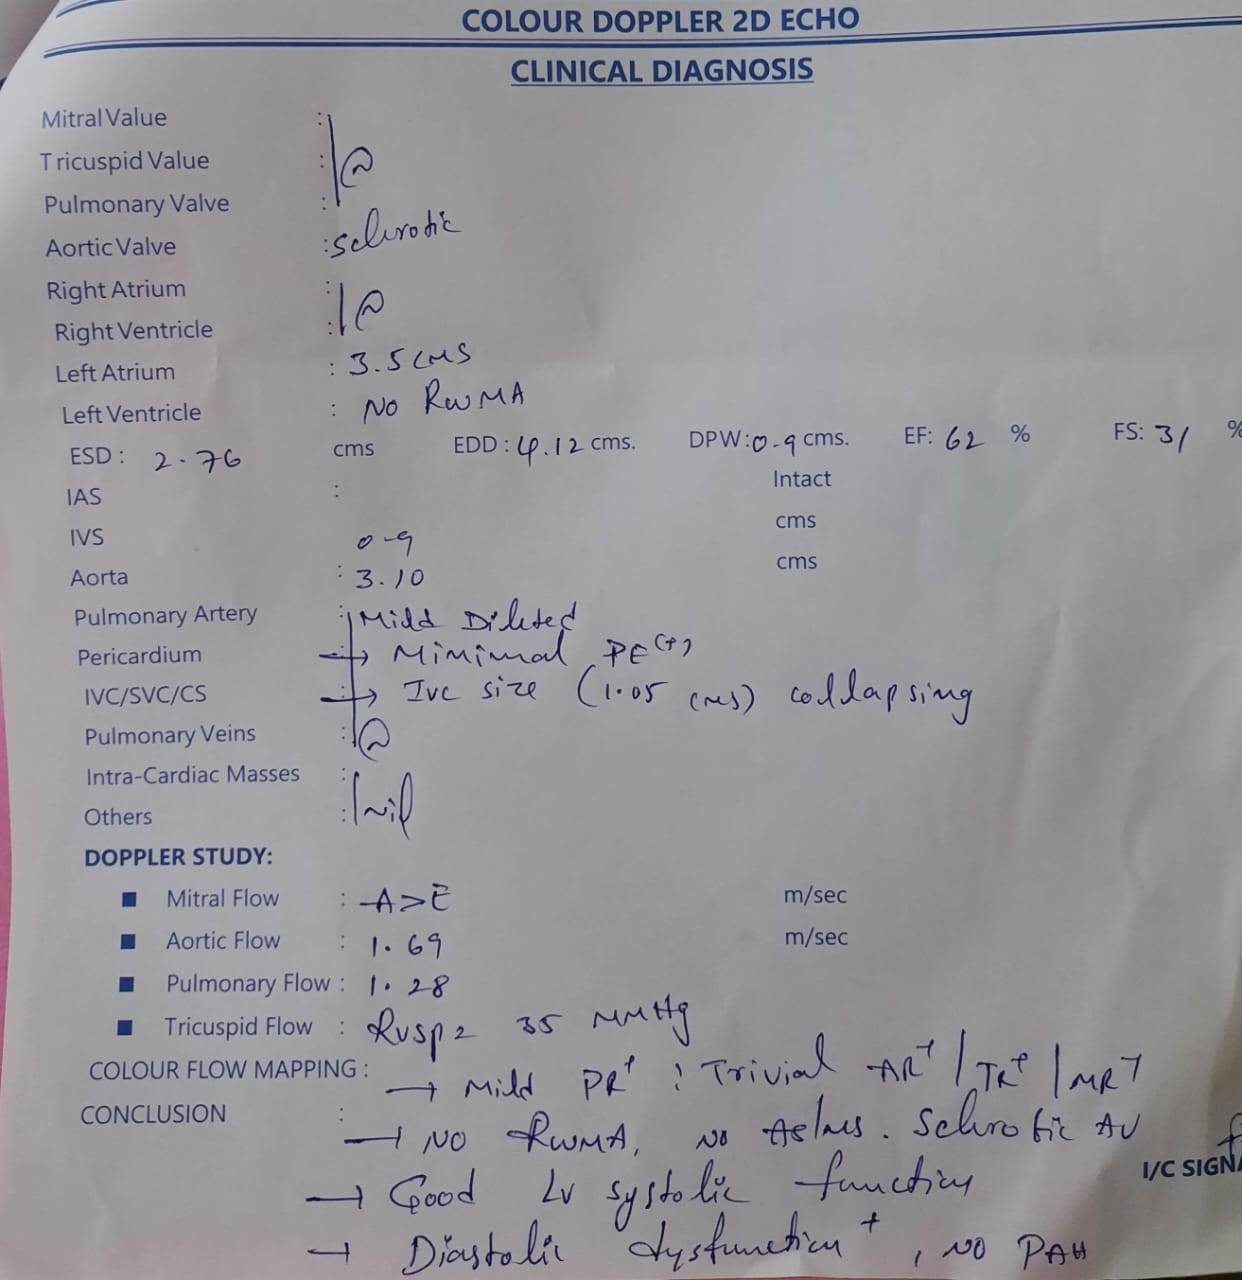 COLOUR DOPPLER 2D ECHO
CLINICAL DIAGNOSIS
Mitral Value :
Tricuspid Value : (N)
Pulmonary Valve :
Aortic Valve : sclerotic
Right Atrium :
Right Ventricle : (N)
Left Atrium : 3.5 cms
Left Ventricle : NO RWMA
ESD : 2.76 cms EDD : 4.12 cms. DPW: 0.9 cms. EF: 62 % FS: 31 %
IAS : Intact
IVS 0.9 cms
Aorta : 3.10 cms
Pulmonary Artery : Mild Dilated
Pericardium → Minimal PE(+)
IVC/SVC/CS → Ivc size (1.05 cms) collapsing
Pulmonary Veins : (N)
Intra-Cardiac Masses :
Others : nil
DOPPLER STUDY:
Mitral Flow : A>E m/sec
Aortic Flow : 1.69 m/sec
Pulmonary Flow : 1.28
Tricuspid Flow : RVSP = 35 MMHg
COLOUR FLOW MAPPING : → Mild PR+ : Trivial AR+ / TR+ / MR+
CONCLUSION : → NO RWMA, NO AS/MS. Sclerotic AV
I/C SIGNA
→ Good LV systolic function
→ Diastolic dysfunction +, NO PAH